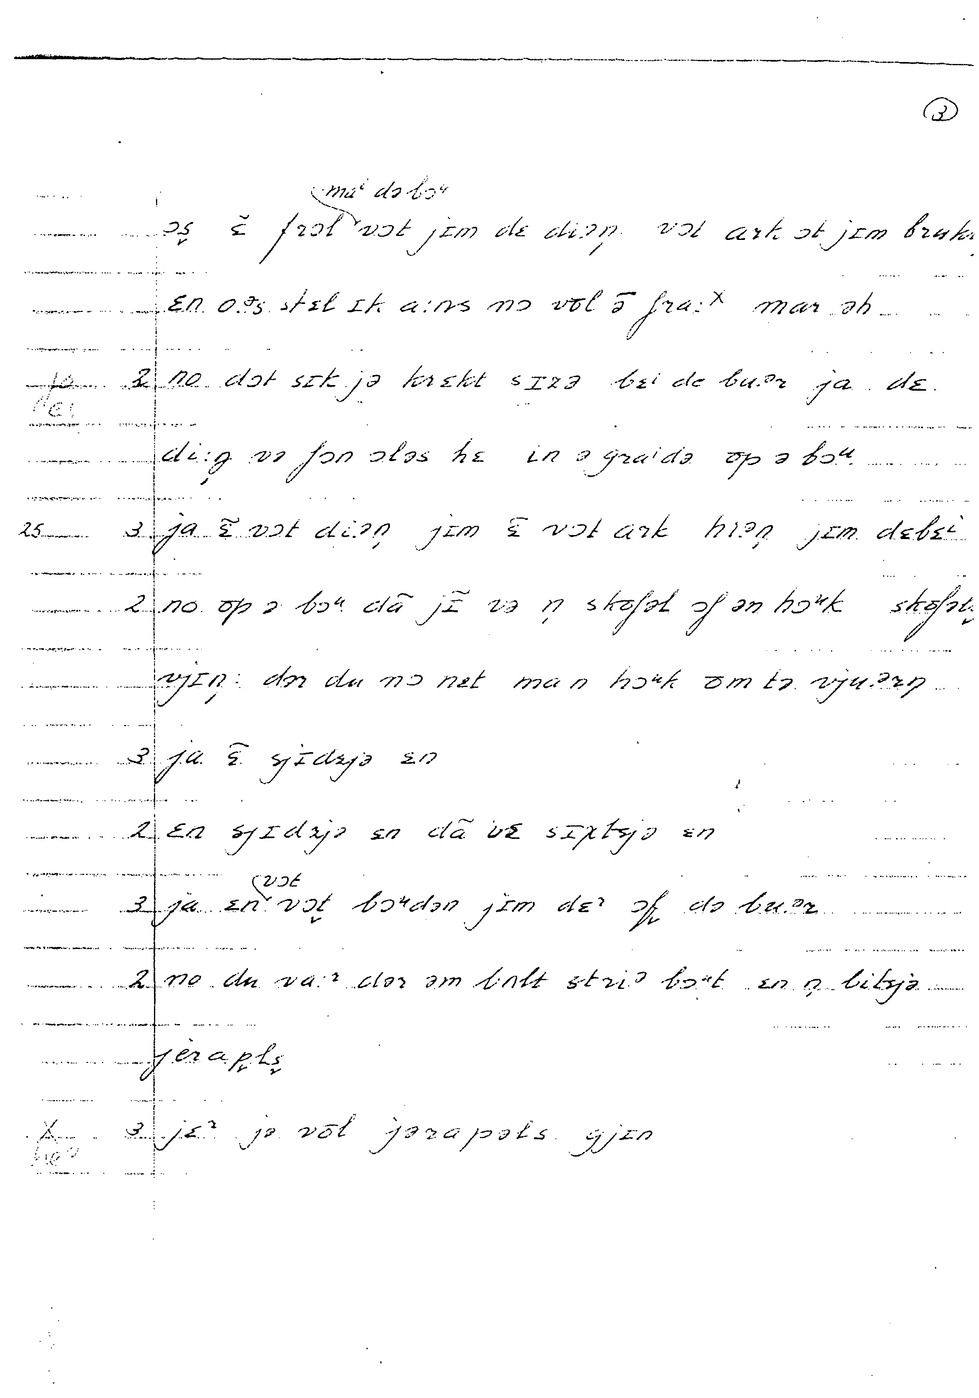 3
maⁱ də bɔᵘ
əs̬ ɛ̃ frəl vɔt jɪm dɛ diəṇ vɔt ark ɔt jɪm
ɛn o.ᵊs stɛl ɪk a:ns nɔ vɔl ə̄ fra:ˣ mar əh
2 no dɔt sɪk jə krɛkt sɪzə bɛi de bu.ᵊr ja dɛ
di:ŋ və fɔn ɔləs hɛ in ə graidə ɔp ə bɔᵘ.
25 3 ja ɛ̃ vɔt diəṇ jɪm ɛ̃ vɔt ark hiəṇ jɪm dɛbɛⁱ
2 no ɔp ə bɔᵘ dã jɪ̃ və ṇ skɔfəl ɔf ən hɔᵘk
vjɪṇ: dər du nɔ nɛt ma n hɔᵘk ɔm tə vju.ᵊrṇ
3 ja ɛ̃ sjɪdzjə ɛn
2 ɛn sjɪdzjə ɛn dã vɛ sɪxtsjə ɛn
vɔt
3 ja ɛn vɔt̬ bɔᵘdən jɪm dɛʳ ɔf̬ də bu.ᵊr
2 no du va:ʳ dər əm bʌlt striᵊ bɔᵘt ɛn ṇ bitsjə
jɛrap̬ls̬
X 3 jɛʳ jə vɔl jərapəls gjɪn